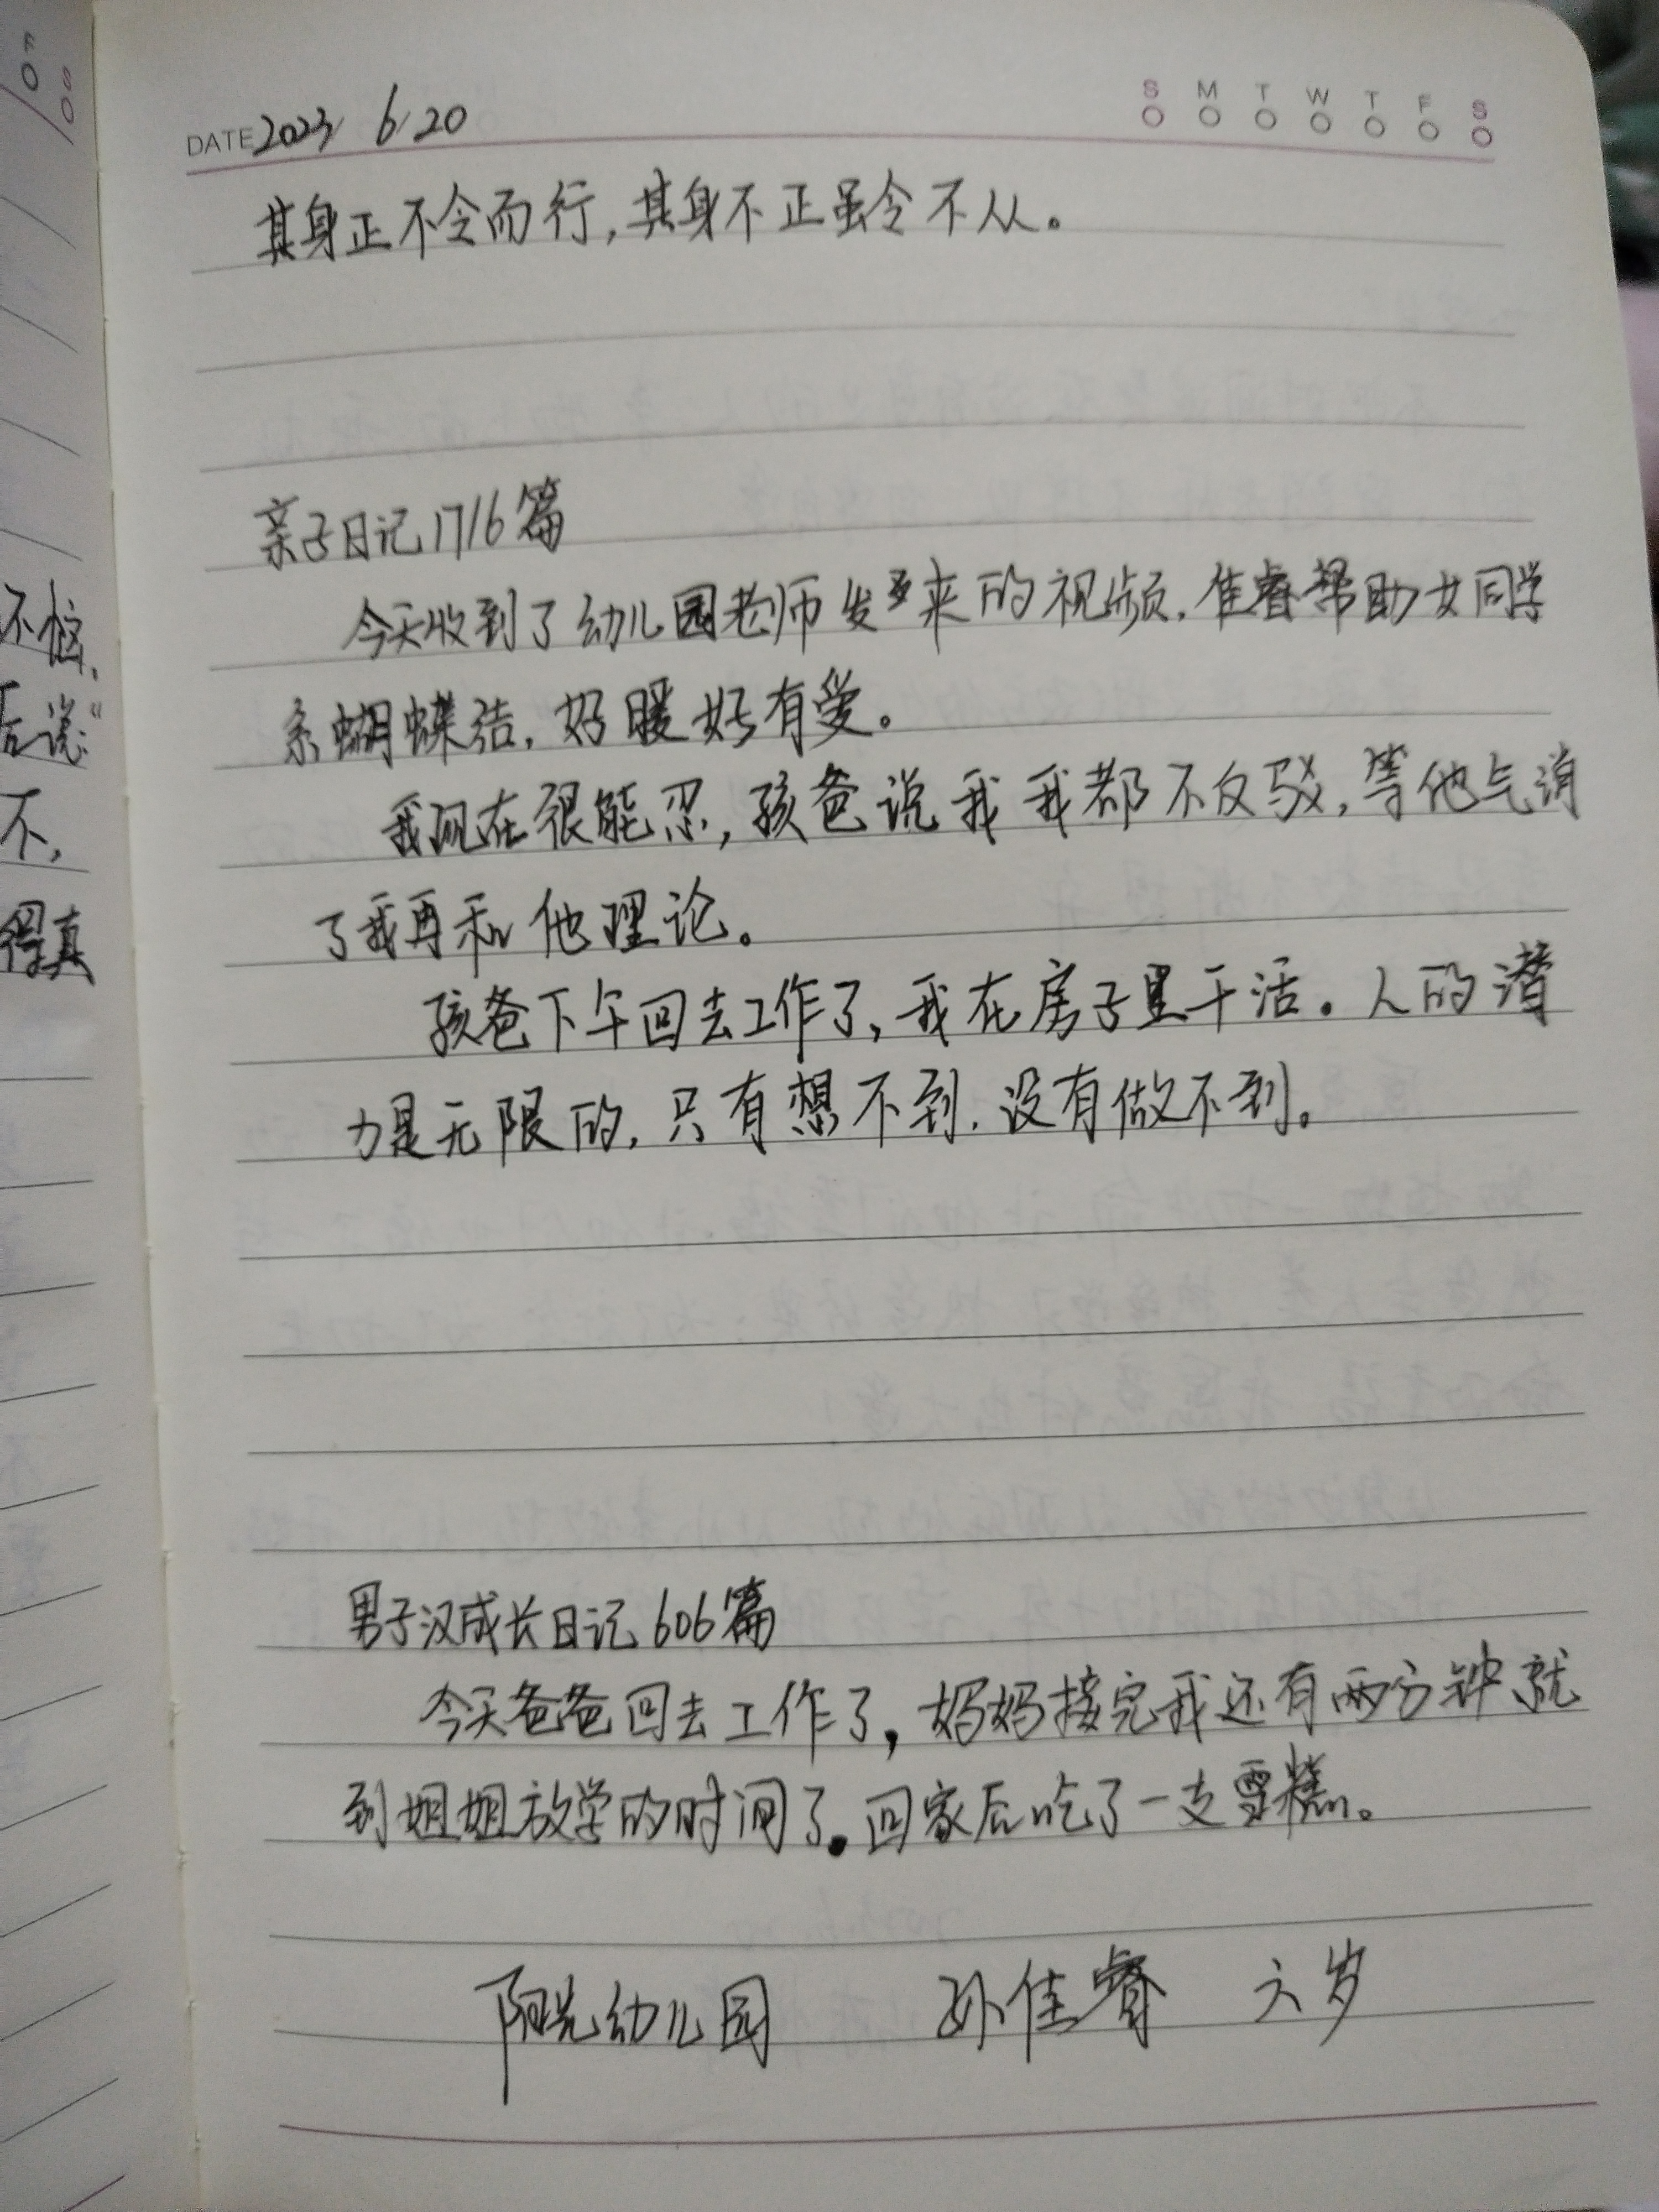 DATE 2023 6 20
S M T W T F S
其身正不令而行,其身不正虽令不从。
亲子日记1716篇
今天收到了幼儿园老师发来的视频,佳睿帮助女同学
系蝴蝶结,好暖好有爱。
我现在很能忍,孩爸说我我都不反驳,等他气消
了我再和他理论。
孩爸下午回去工作了,我在房子里干活。人的潜
力是无限的,只有想不到,没有做不到。
男子汉成长日记606篇
今天爸爸回去工作了,妈妈接完我还有两分钟就
到姐姐放学的时间了。回家后吃了一支雪糕。
阳光幼儿园 孙佳睿 六岁
F S
不恼,
后说:“
不,
得真